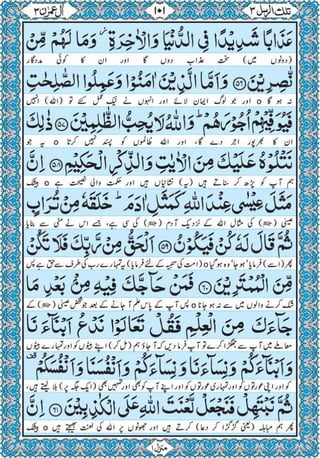 اٰل عمرٰن ٣ ١٠١ تلك الرسل ٣
عَذَابًا شَدِيْدًا فِي الدُّنْيَا وَالْاٰخِرَةِ ؗ وَمَا لَهُمْ مِّنْ
(دونوں میں) سخت عذاب دوں گا اور ان کا کوئی مددگار
نّٰصِرِيْنَ ۝٥٦ وَاَمَّا الَّذِيْنَ اٰمَنُوْا وَعَمِلُوا الصّٰلِحٰتِ
نہ ہو گا ۝ اور جو لوگ ایمان لائے اور انہوں نے نیک عمل کئے تو (اللہ) انہیں
فَيُوَفِّيْهِمْ اُجُوْرَهُمْ ؕ وَاللّٰهُ لَا يُحِبُّ الظّٰلِمِيْنَ ۝٥٧ ذٰلِكَ
ان کا بھرپور اجر دے گا، اور اللہ ظالموں کو پسند نہیں کرتا ۝ یہ جو
نَتْلُوْهُ عَلَيْكَ مِنَ الْاٰيٰتِ وَالذِّكْرِ الْحَكِيْمِ ۝٥٨ اِنَّ
ہم آپ کو پڑھ کر سناتے ہیں (یہ) نشانیاں ہیں اور حکمت والی نصیحت ہے ۝ بیشک
مَثَلَ عِيْسٰى عِنْدَ اللّٰهِ كَمَثَلِ اٰدَمَ ؕ خَلَقَهٗ مِنْ تُرَابٍ
عیسٰی کی مثال اللہ کے نزدیک آدم کی سی ہے، جسے اس نے مٹی سے بنایا
ثُمَّ قَالَ لَهٗ كُنْ فَيَكُوْنُ ۝٥٩ اَلْحَقُّ مِنْ رَّبِّكَ فَلَا تَكُنْ
پھر (اسے) فرمایا 'ہو جا' وہ ہو گیا ۝
مِّنَ الْمُمْتَرِيْنَ ۝٦٠ فَمَنْ حَآجَّكَ فِيْهِ مِنْۢ بَعْدِ مَا
شک کرنے والوں میں سے نہ ہو جانا ۝ پس آپ کے پاس علم آ جانے کے بعد جو شخص عیسٰی کے
جَآءَكَ مِنَ الْعِلْمِ فَقُلْ تَعَالَوْا نَدْعُ اَبْنَآءَنَا
معاملے میں آپ سے جھگڑا کرے تو آپ فرما دیں کہ آ جاؤ ہم اپنے بیٹوں کو اور تمہارے بیٹوں
وَاَبْنَآءَكُمْ وَنِسَآءَنَا وَنِسَآءَكُمْ وَاَنْفُسَنَا وَاَنْفُسَكُمْ
کو اور اپنی عورتوں کو اور تمہاری عورتوں کو اور اپنے آپ کو بھی اور تمہیں بھی (ایک جگہ پر) بلا لیتے ہیں،
ثُمَّ نَبْتَهِلْ فَنَجْعَلْ لَّعْنَتَ اللّٰهِ عَلَى الْكٰذِبِيْنَ ۝٦١ اِنَّ
پھر ہم مباہلہ (یعنی گڑگڑا کر دعا) کرتے ہیں اور جھوٹوں پر اللہ کی لعنت بھیجتے ہیں ۝ بیشک
منزل